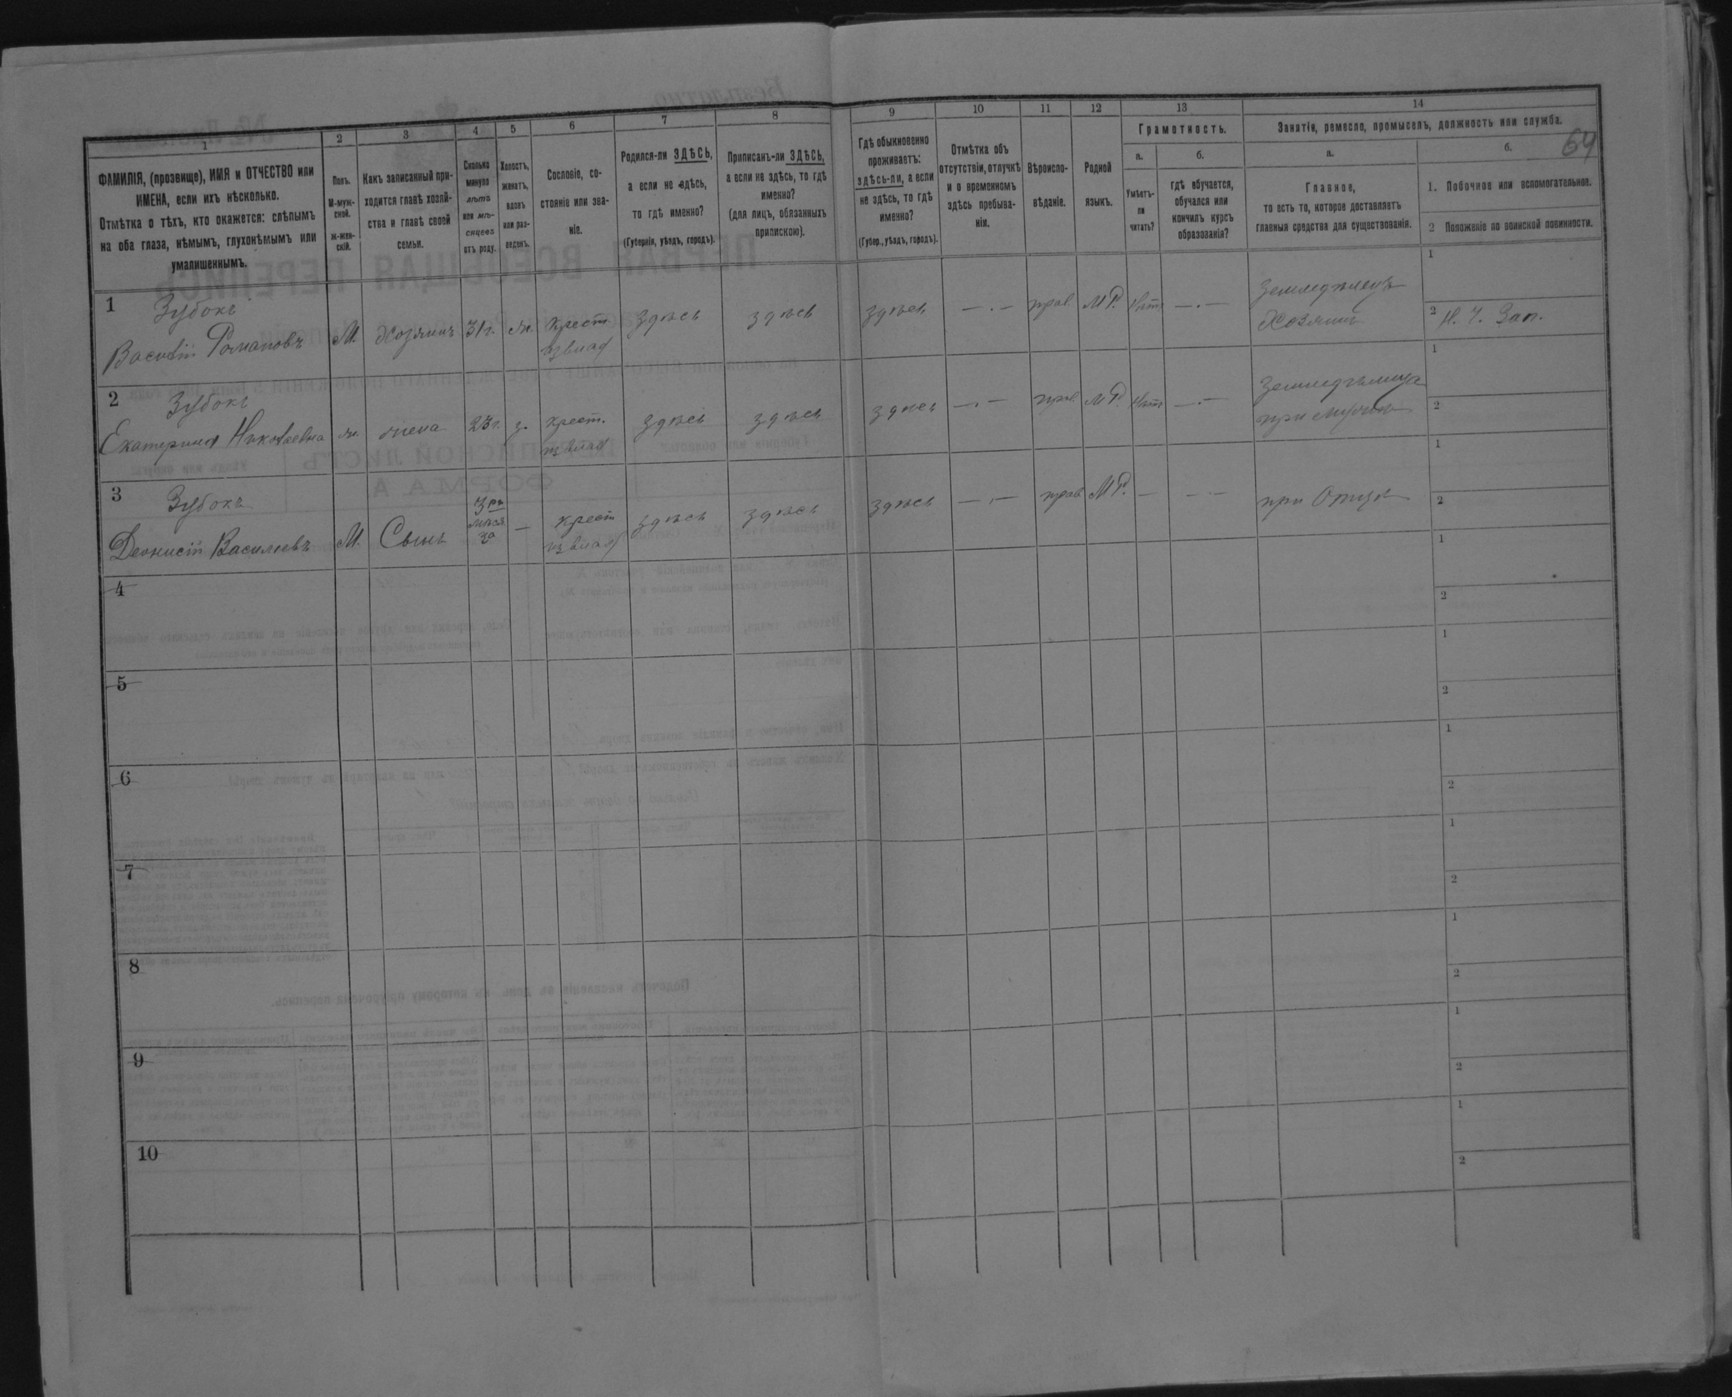 64
1
2
3
4
5
6
7
8
9
10
11
12
13
14
ФАМИЛІЯ, (прозвище), ИМЯ и ОТЧЕСТВО или
ИМЕНА, если ихъ нѣсколько.
Отмѣтка о тѣхъ, кто окажется: слѣпымъ
на оба глаза, нѣмымъ, глухонѣмымъ или
умалишеннымъ.
Полъ.
М-муж-
ской.
Ж-жен-
скій.
Какъ записанный при-
ходится главѣ хозяй-
ства и главѣ своей
семьи.
Сколько
минуло
лѣтъ
или мѣ-
сяцевъ
отъ роду.
Холостъ,
женатъ,
вдовъ
или раз-
веденъ.
Сословіе, со-
стояніе или зва-
ніе.
Родился-ли ЗДѢСЬ,
а если не здѣсь,
то гдѣ именно?
(Губернія, уѣздъ, городъ).
Приписанъ-ли ЗДѢСЬ,
а если не здѣсь, то гдѣ
именно?
(для лицъ, обязанныхъ
припискою).
Гдѣ обыкновенно
проживаетъ:
здѣсь-ли, а если
не здѣсь, то гдѣ
именно?
(Губер., уѣздъ, городъ).
Отмѣтка объ
отсутствіи, отлучкѣ
и о временномъ
здѣсь пребыва-
ніи.
Вѣроиспо-
вѣданіе.
Родной
языкъ.
Грамотность.
а.
Умѣетъ-
ли
читать?
б.
гдѣ обучается,
обучался или
кончилъ курсъ
образованія?
Занятія, ремесло, промыселъ, должность или служба.
а.
Главное,
то есть то, которое доставляетъ
главныя средства для существованія.
б.
1. Побочное или вспомогательное.
2 Положеніе по воинской повинности.
1 Зубокъ
Василій Романовъ М. Хозяинъ 31 г. ж. крест. здѣсь здѣсь здѣсь — прав М.Р. Нѣтъ — Земледѣлецъ
Хозяинъ 1
2 Н. Ч. Зап.
2 Зубокъ
Екатерина Николаевна ж. жена 23 г. з. крест. здѣсь здѣсь здѣсь — прав М.Р. Нѣтъ — 1
при 2
3 Зубокъ
Деонисій Васильевъ М. Сынъ — крест здѣсь здѣсь здѣсь — прав М.Р. — — при Отцѣ 1
2
4 1
2
5 1
2
6 1
2
7 1
2
8 1
2
9 1
2
10 1
2